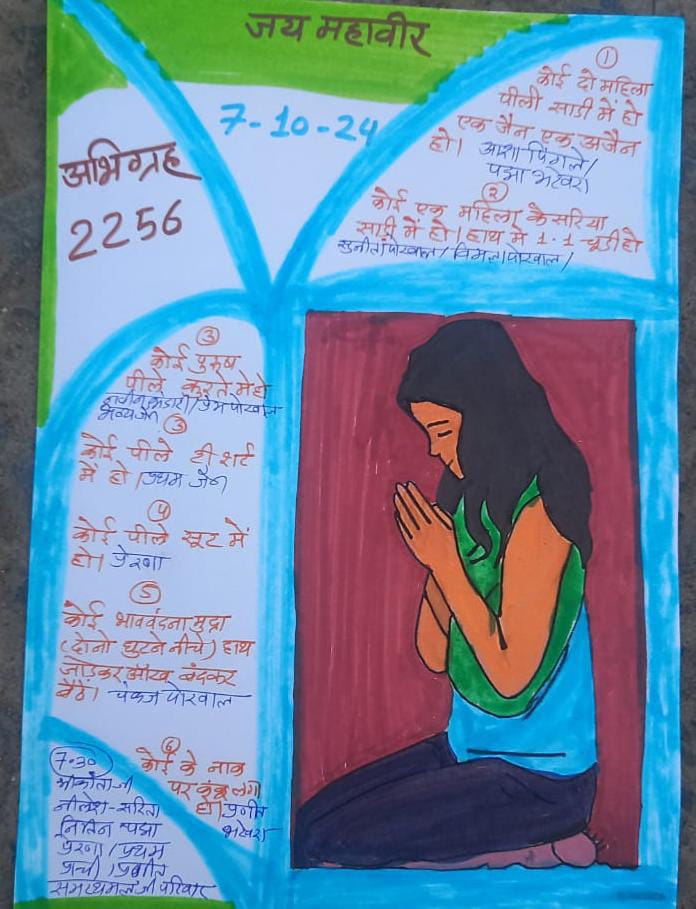 जय महावीर
7-10-24
अभिग्रह
2256
①
कोई दो महिला
पीली साडी में हो
एक जैन एक अजैन
हो। आशा पिंगले/
पद्मा भटेवरा
②
कोई एक महिला केसरिया
साडी में हो। हाथ मे 1.1 चूडी हो
सुनीता पोरवाल/विमला पोरवाल/
③
कोई पुरुष
पीले कुरते मे हो
भंडारी/प्रेम पोरवाल
भव्य जैन
③
कोई पीले टी शर्ट
में हो। प्रथम जैन
④
कोई पीले सूट में
हो। प्रेरणा
⑤
कोई भाववंदना मुद्रा
(दोनो घुटने नीचे) हाथ
जोडकर आँख बंदकर
बैठे। पंकज पोरवाल
⑥
कोई के नाक
पर कुंकू लगा
हो। प्रणीत
भटेवरा
7.30
नीलेश-सरिता
नितिन पद्मा
प्रेरणा/प्रथम
प्राची/प्रणीत
समरथमलजी परिवार